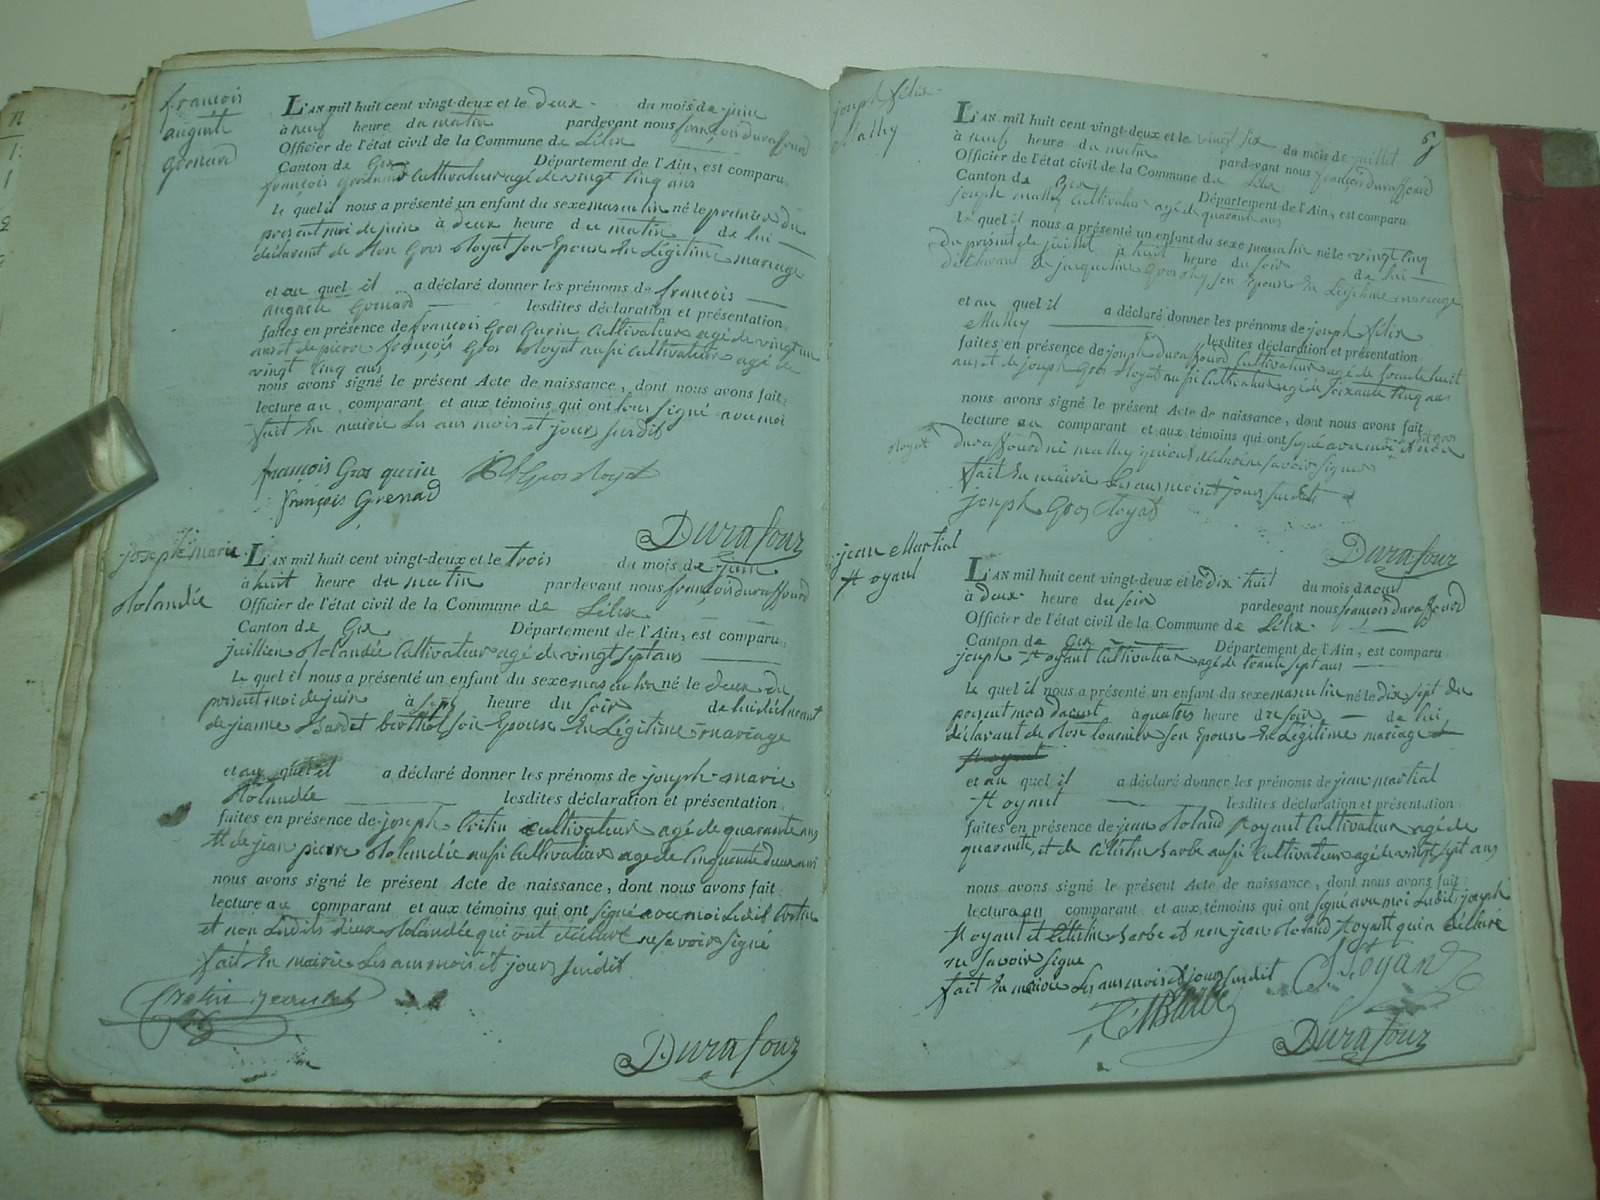 françois
auguste
Grenard
L'AN mil huit cent vingt-deux et le deux du mois de juin
à neuf heure du matin pardevant nous françois durafourd
Officier de l'état civil de la Commune de Lélex
Canton de Gex Département de l'Ain, est comparu
françois Grenard Cultivateur agé de vingt Cinq ans
Le quel il nous a présenté un enfant du sexe masculin né le premier du
present moi de juin à deux heure du matin de lui
déclarent de Gros Royat son Epouse En Légitime mariage
et au quel il a déclaré donner les prénoms de françois
auguste Grenard lesdites déclaration et présentation
faites en présence de françois Gros Gurin Cultivateur agé de vingt un
ans et de pierre françois Gros Royat aussi Cultivateur agé de
vingt Cinq ans
nous avons signé le présent Acte de naissance, dont nous avons fait
lecture au comparant et aux témoins qui ont tous signé avec moi
fait En mairie Les ans mois et jours susdit
françois Gros gurin Gros Royat
françois Grenad
Durafour
joseph marie
Rolandée
L'AN mil huit cent vingt-deux et le trois du mois de juin
à huit heure du matin pardevant nous françois durafourd
Officier de l'état civil de la Commune de Lélex
Canton de Gex Département de l'Ain, est comparu
juillien Rolandée Cultivateur agé de vingt sept ans
Le quel il nous a présenté un enfant du sexe masculin né le deux du
present moi de juin à sept heure du soir de lui déclarent
de jeanne berthet son Epouse En Légitime mariage
et au quel il a déclaré donner les prénoms de joseph marie
Rolandée lesdites déclaration et présentation
faites en présence de joseph Crétin cultivateur agé de quarante ans
et de jean pierre Rolandée aussi Cultivateur agé de Cinquante deux ans
nous avons signé le présent Acte de naissance, dont nous avons fait
lecture au comparant et aux témoins qui ont signé avec moi Ledit Crétin
et non Lesdits deux Rolandée qui ont déclaré ne savoir signé
fait En mairie Les ans mois et jours susdit
Durafour
joseph félix
Mathy
6
L'AN mil huit cent vingt-deux et le vingt six du mois de juillet
à neuf heure du matin pardevant nous françois durafourd
Officier de l'état civil de la Commune de Lélex
Canton de Gex Département de l'Ain, est comparu
joseph mathy Cultivateur agé de quarante ans
Le quel il nous a présenté un enfant du sexe masculin né le vingt Cinq
du présent de juillet à huit heure du soir de lui
déclarant de jacqueline Gros son Epouse En Légitime mariage
et au quel il a déclaré donner les prénoms de joseph félix
Mathy lesdites déclaration et présentation
faites en présence de joseph durafourd Cultivateur agé de trente huit
ans et de joseph Gros Royat aussi Cultivateur agé de soixante Cinq ans
nous avons signé le présent Acte de naissance, dont nous avons fait
lecture au comparant et aux témoins qui ont signé avec moi et non
Royat durafourd ni mathy qui ont déclaré ne savoir signer
fait En mairie Les ans mois et jours susdit
joseph Gros Royat
Durafour
jean Martial
Royant
L'AN mil huit cent vingt-deux et le dix huit du mois daout
à deux heure du soir pardevant nous françois durafourd
Officier de l'état civil de la Commune de Lélex
Canton de Gex Département de l'Ain, est comparu
joseph Royant Cultivateur agé de trente sept ans
Le quel il nous a présenté un enfant du sexe masculin né le dix sept du
present mois daoust à quatres heure du soir de lui
déclarant de Rose tournier son Epouse En Légitime mariage
et au quel il a déclaré donner les prénoms de jean martial
Royant lesdites déclaration et présentation
faites en présence de jean Roland Royant Cultivateur agé de
quarante, et de Célestin barbe aussi Cultivateur agé de vingt sept ans
nous avons signé le présent Acte de naissance, dont nous avons fait
lecture au comparant et aux témoins qui ont signé avec moi Ledit joseph
Royant et Célestin barbe et non jean Roland Royant qui a déclaré
ne savoir signe
fait En mairie Les ans mois et jours susdit
Royant
Barbe
Durafour